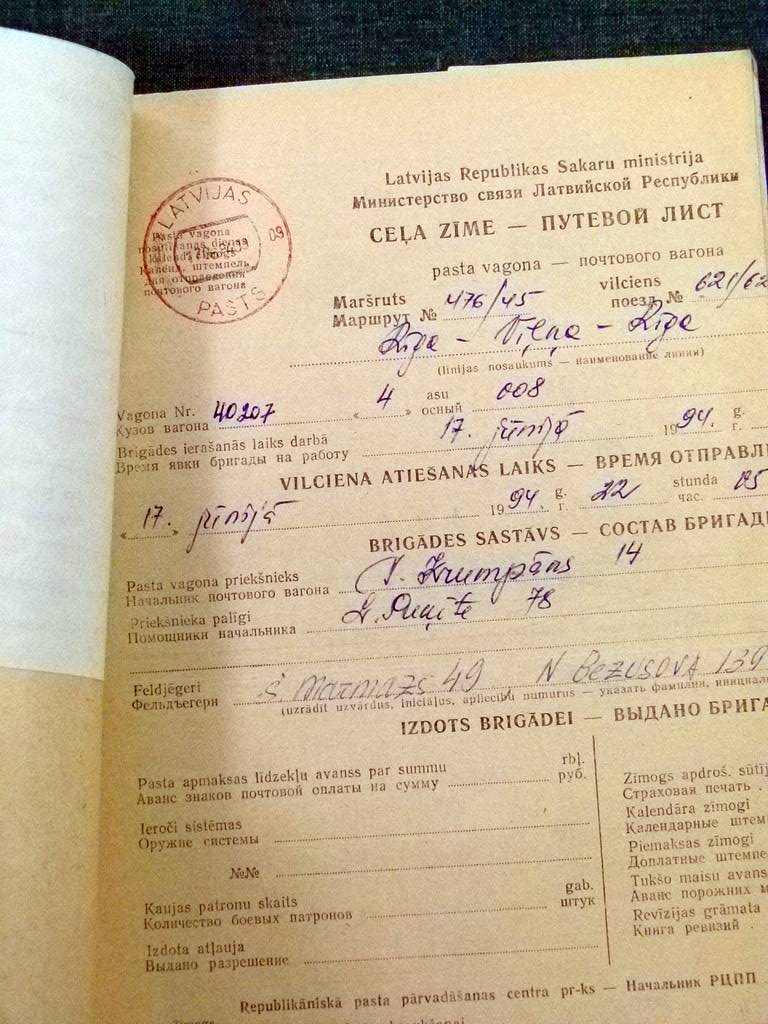 LATVIJAS
Pasta vagona
nosūtīšanas dienas
kalendārzīmogs
Календ. штемпель
дня отправления
почтового вагона
09
PASTS
Latvijas Republikas Sakaru ministrija
Министерство связи Латвийской Республики
CEĻA ZĪME — ПУТЕВОЙ ЛИСТ
pasta vagona — почтового вагона
Maršruts vilciens
Маршрут № 476/45 поезд № 621/62
Rīga – Viļņa – Rīga
(līnijas nosaukums — наименование линии)
Vagona Nr. 40207 « 4 » asu 008
Кузов вагона осный
Brigādes ierašanās laiks darbā 17. jūnijā 1994. g.
Время явки бригады на работу г.
VILCIENA ATIEŠANAS LAIKS — ВРЕМЯ ОТПРАВЛ
« 17. » jūnijā 1994 g. 22 stunda 05
г. час.
BRIGĀDES SASTĀVS — СОСТАВ БРИГАД
Pasta vagona priekšnieks
Начальник почтового вагона Krumpāns 14
Priekšnieka palīgi
Помощники начальника 78
Feldjēgeri 49 N Bezusova 139
Фельдъегери
(uzrādīt uzvārdus, iniciāļus, apliecību numurus — указать фамилии, инициал
IZDOTS BRIGĀDEI — ВЫДАНО БРИГА
Pasta apmaksas līdzekļu avanss par summu rbļ.
Аванс знаков почтовой оплаты на сумму руб.
Ieroči sistēmas
Оружие системы
№№
Kaujas patronu skaits gab.
Количество боевых патронов штук
Izdota atļauja
Выдано разрешение
Zīmogs apdroš. sūtīj
Страховая печать .
Kalendāra zīmogi
Календарные штем
Piemaksas zīmogi
Доплатные штемпе
Tukšo maisu avans
Аванс порожних м
Revīzijas grāmata
Книга ревизий .
Republikāniskā pasta pārvadāšanas centra pr-ks — Начальник РЦПП